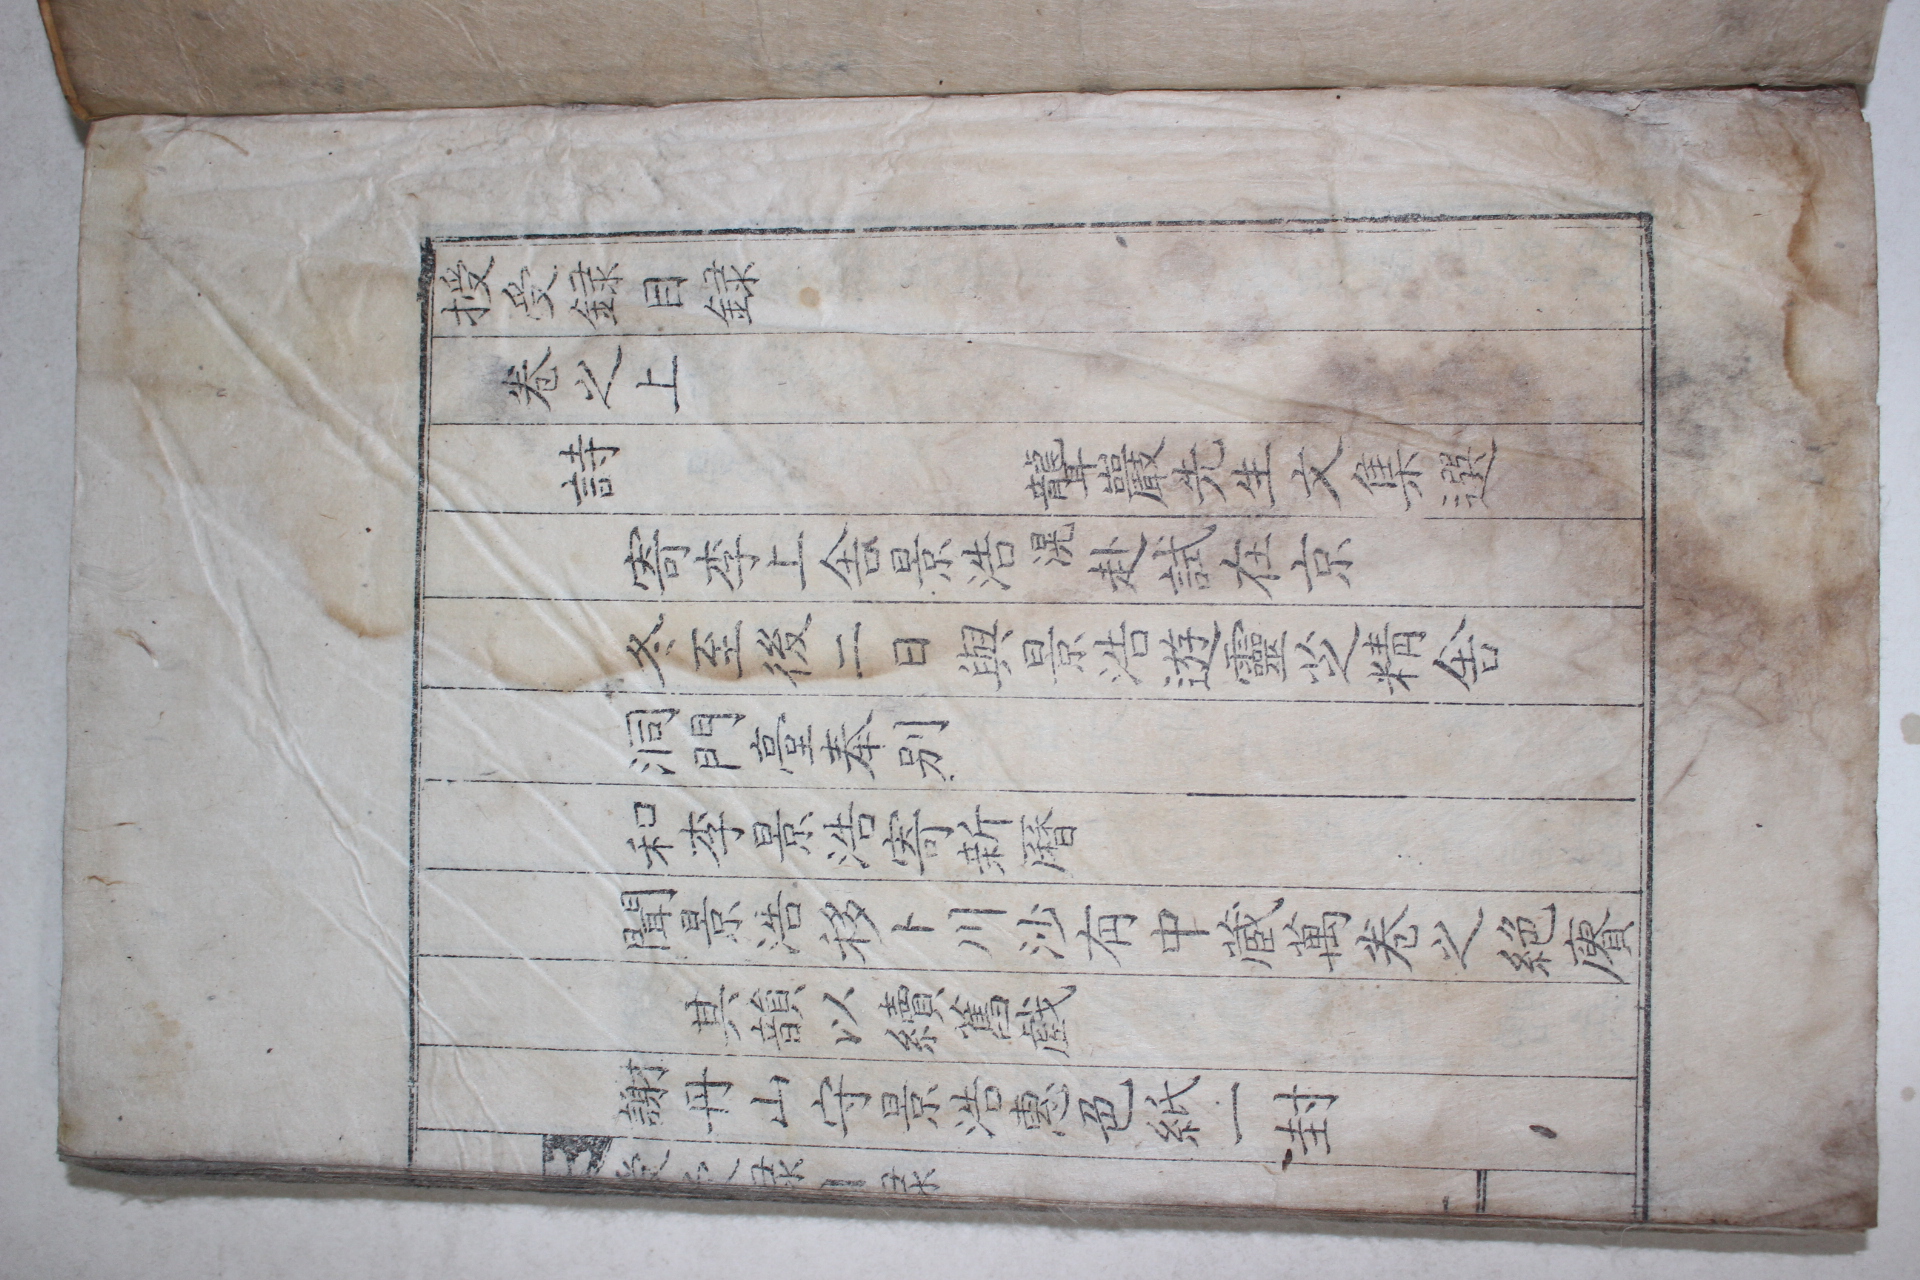 授受錄目錄
卷之上
詩 聾巖先生文集選
寄李上舍景浩滉赴試在京
冬至後二日與景浩遊靈芝精舍
洞門臺奉別
和李景浩寄新曆
聞景浩移卜川沙有中藏萬卷之絶賡
其韻以續舊戱
謝丹山守景浩惠色紙一封